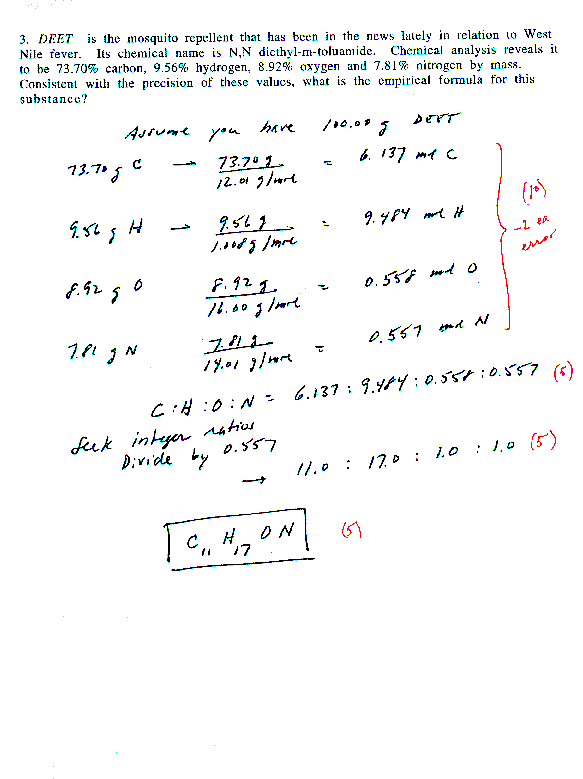 3. DEET is the mosquito repellent that has been in the news lately in relation to West
Nile fever. Its chemical name is N,N diethyl-m-toluamide. Chemical analysis reveals it
to be 73.70% carbon, 9.56% hydrogen, 8.92% oxygen and 7.81% nitrogen by mass.
Consistent with the precision of these values, what is the empirical formula for this
substance?
Assume you have 100.00 g DEET
73.70 g C → 73.70 g / 12.01 g/mol = 6.137 mol C
(10)
9.56 g H → 9.56 g / 1.008 g/mol = 9.484 mol H
-2 ea
error
8.92 g O 8.92 g / 16.00 g/mol = 0.558 mol O
7.81 g N 7.81 g / 14.01 g/mol = 0.557 mol N
C : H : O : N = 6.137 : 9.484 : 0.558 : 0.557 (5)
Seek integer ratios
Divide by 0.557
→ 11.0 : 17.0 : 1.0 : 1.0 (5)
C₁₁ H₁₇ O N (5)